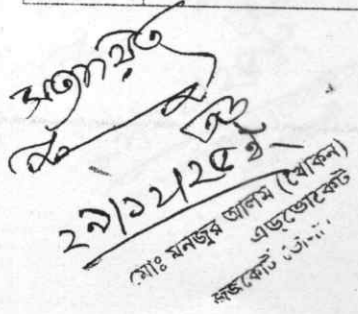 সত্যায়িত
২৯/১২/২৫ ইং
মোঃ মনজুর আলম (খোকন)
এডভোকেট
জজকোর্ট